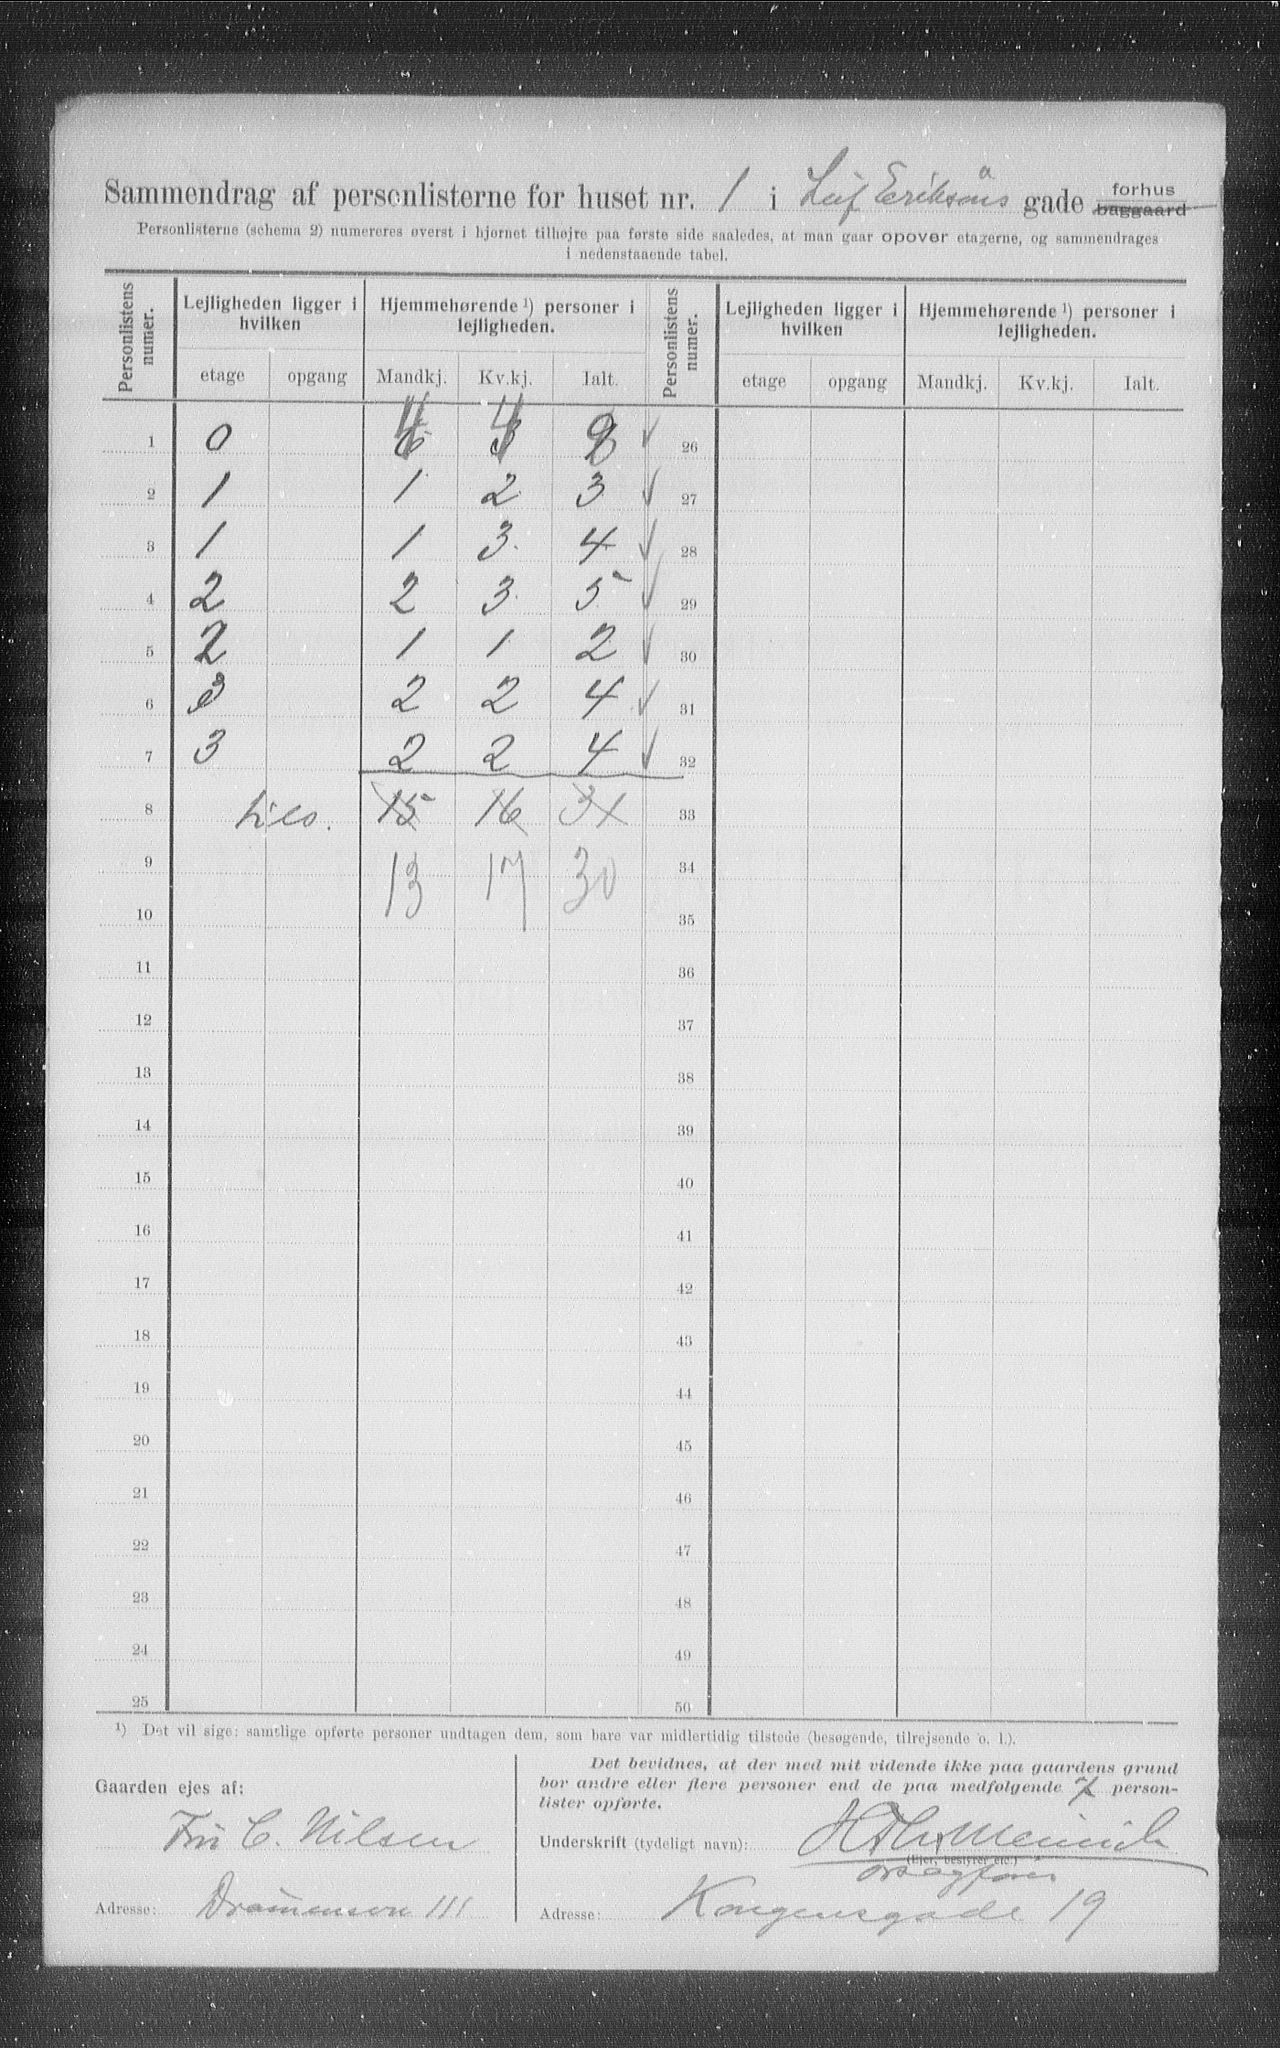 Sammendrag af personlisterne for huset nr. 1 i Leif Eriksøns gade forhus baggaard
Personlisterne (schema 2) numereres øverst i hjørnet tilhøjre paa første side saaledes, at man gaar opover etagerne, og sammendrages
i nedenstaaende tabel.
Personlistens numer. Lejligheden ligger i hvilken Hjemmehørende ¹) personer i lejligheden. Personlistens numer. Lejligheden ligger i hvilken Hjemmehørende ¹) personer i lejligheden.
etage opgang Mandkj. Kv.kj. Ialt. etage opgang Mandkj. Kv.kj. Ialt.
1 0 4 4 8 26
2 1 1 2 3 27
3 1 1 3 4 28
4 2 2 3 5 29
5 2 1 1 2 30
6 3 2 2 4 31
7 3 2 2 4 32
8 tils. 15 16 31 33
9 13 17 30 34
10 35
11 36
12 37
13 38
14 39
15 40
16 41
17 42
18 43
19 44
20 45
21 46
22 47
23 48
24 49
25 50
¹) Det vil sige: samtlige opførte personer undtagen dem, som bare var midlertidig tilstede (besøgende, tilrejsende o. l.).
Gaarden ejes af:
Fru C. Nilsen
Adresse: Drammensvn 111
Det bevidnes, at der med mit vidende ikke paa gaardens grund
bor andre eller flere personer end de paa medfølgende 7 person-
lister opførte.
Underskrift (tydeligt navn):
(Ejer, bestyrer etc.)
Adresse: Kongensgade 19